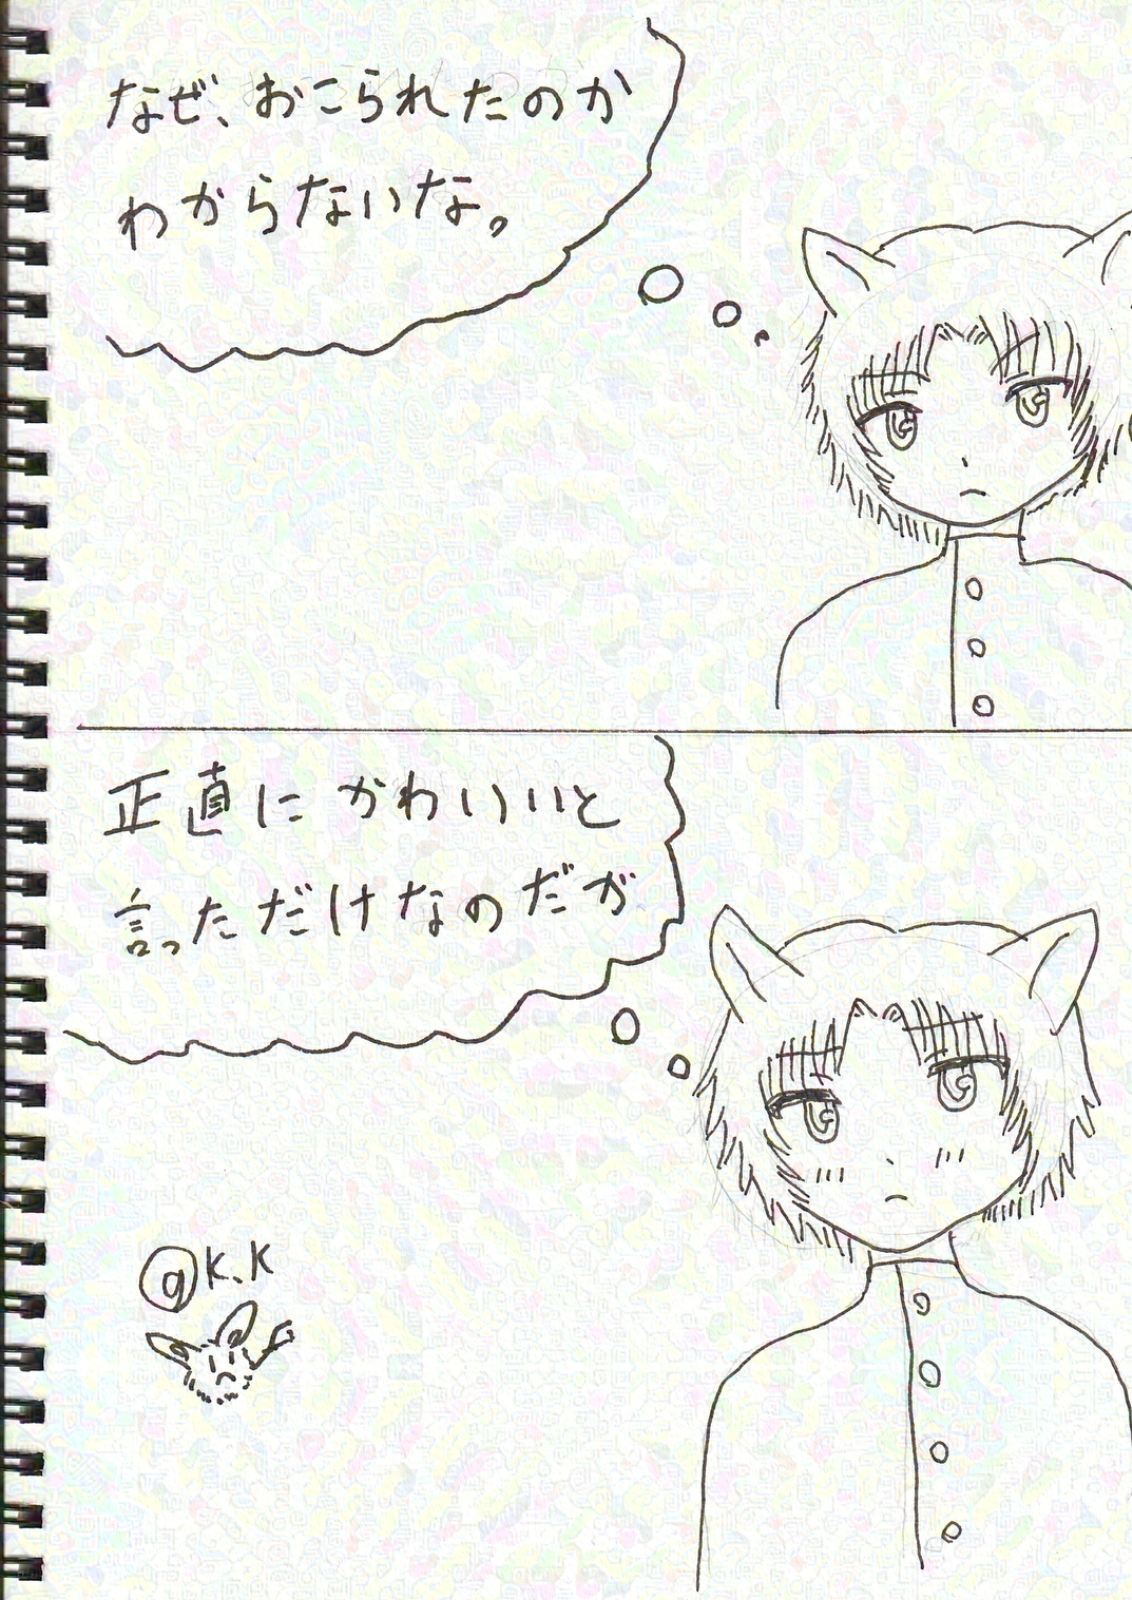 なぜ、おこられたのか
わからないな。
正直にかわいいと
言っただけなのだが
@K.K